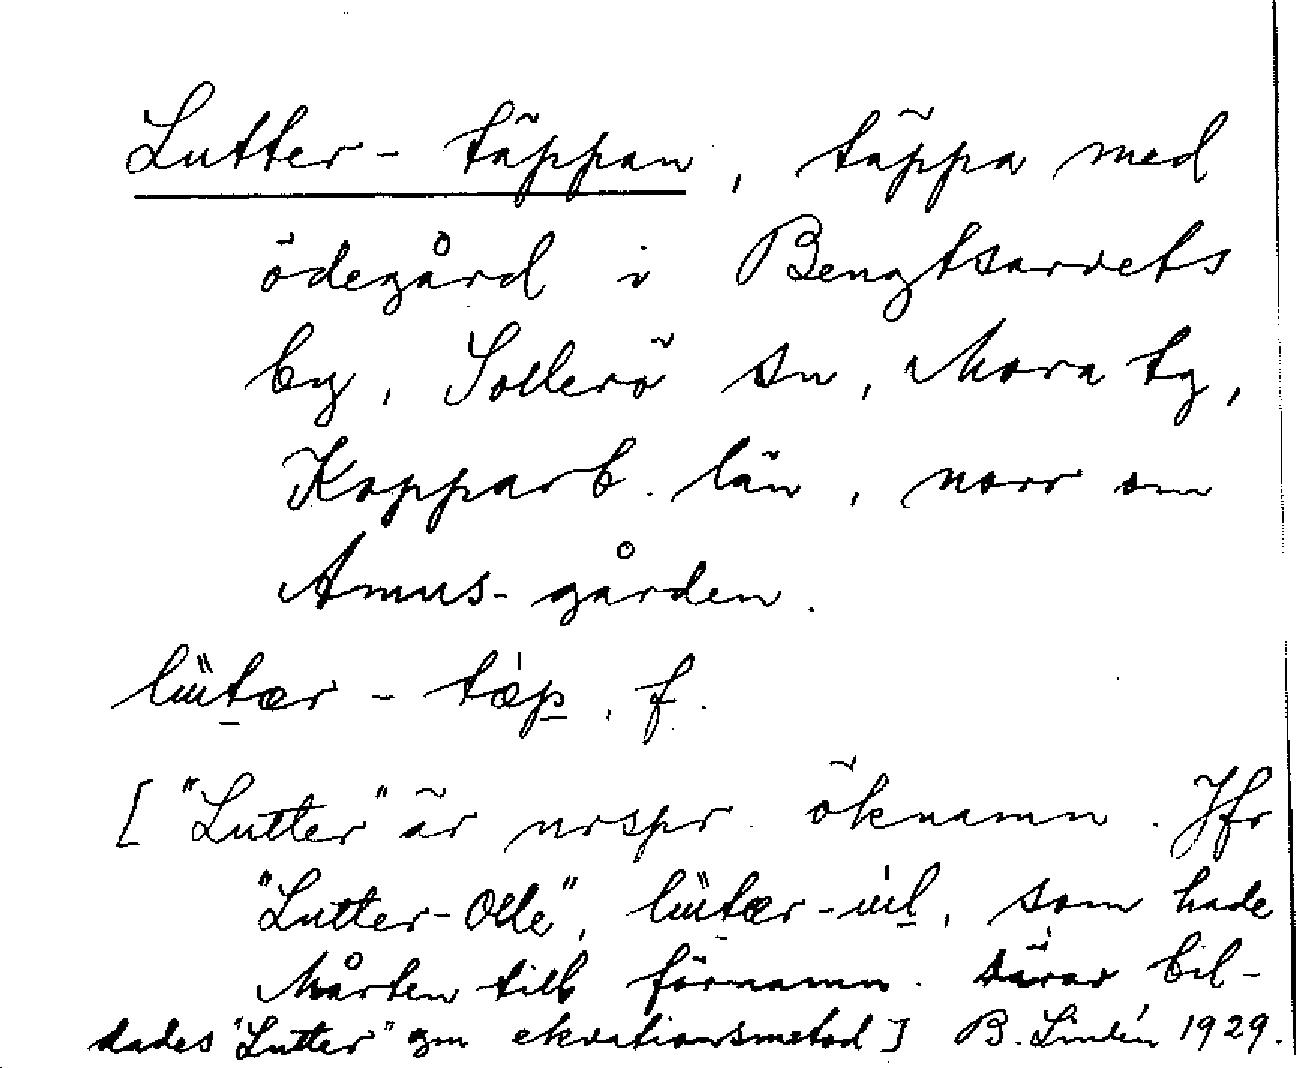 Lutter-täppan, täppa med
ödegård i Bengtsarvets
by, Sollerö sn, Mora tg,
Kopparb. län, norr om
Amus-gården.
lütær-tæp, f.
["Lutter" är urspr. öknamn. Jfr
"Lutter-Olle", lütær-, som hade
Mårten till förnamn. bil-
dades "Lutter" gm ekvationsmetod] B. Lindén 1929.